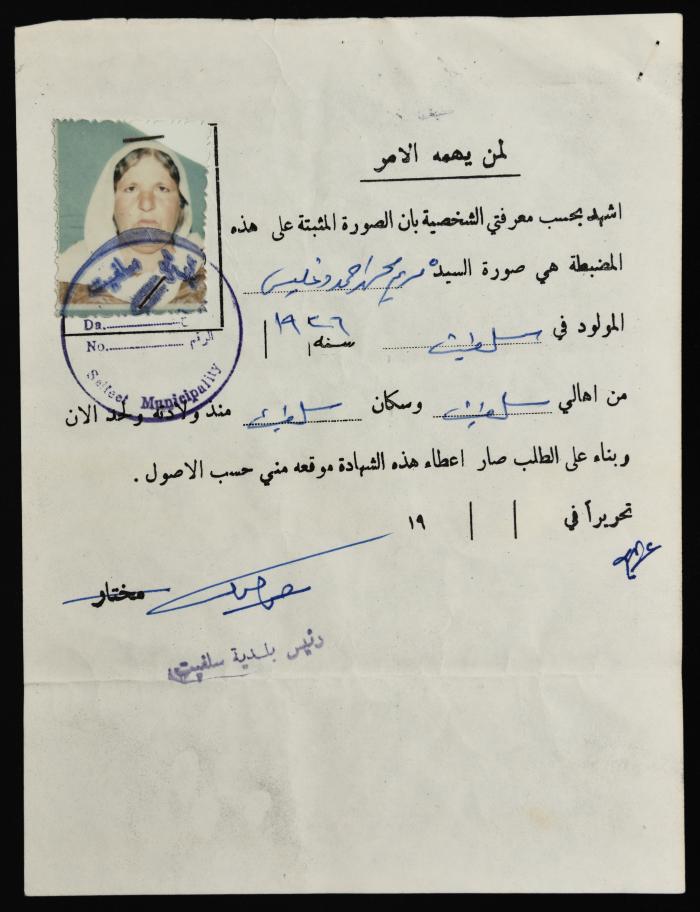 لمن يهمه الامر
اشهد بحسب معرفتي الشخصية بان الصورة المثبتة على هذه
المضبطة هي صورة السيدة مريم محمد احمد دغليس
المولود في سلفيت سنه ١٩٣٦
من اهالي سلفيت وسكان سلفيت منذ ولادته ولحد الان
وبناء على الطلب صار اعطاء هذه الشهادة موقعه مني حسب الاصول .
تحريراً في | | ١٩
مختار
رئيس بلدية سلفيت
بلدية سلفيت
Da.
No. الرقم
Selfeet Municipality